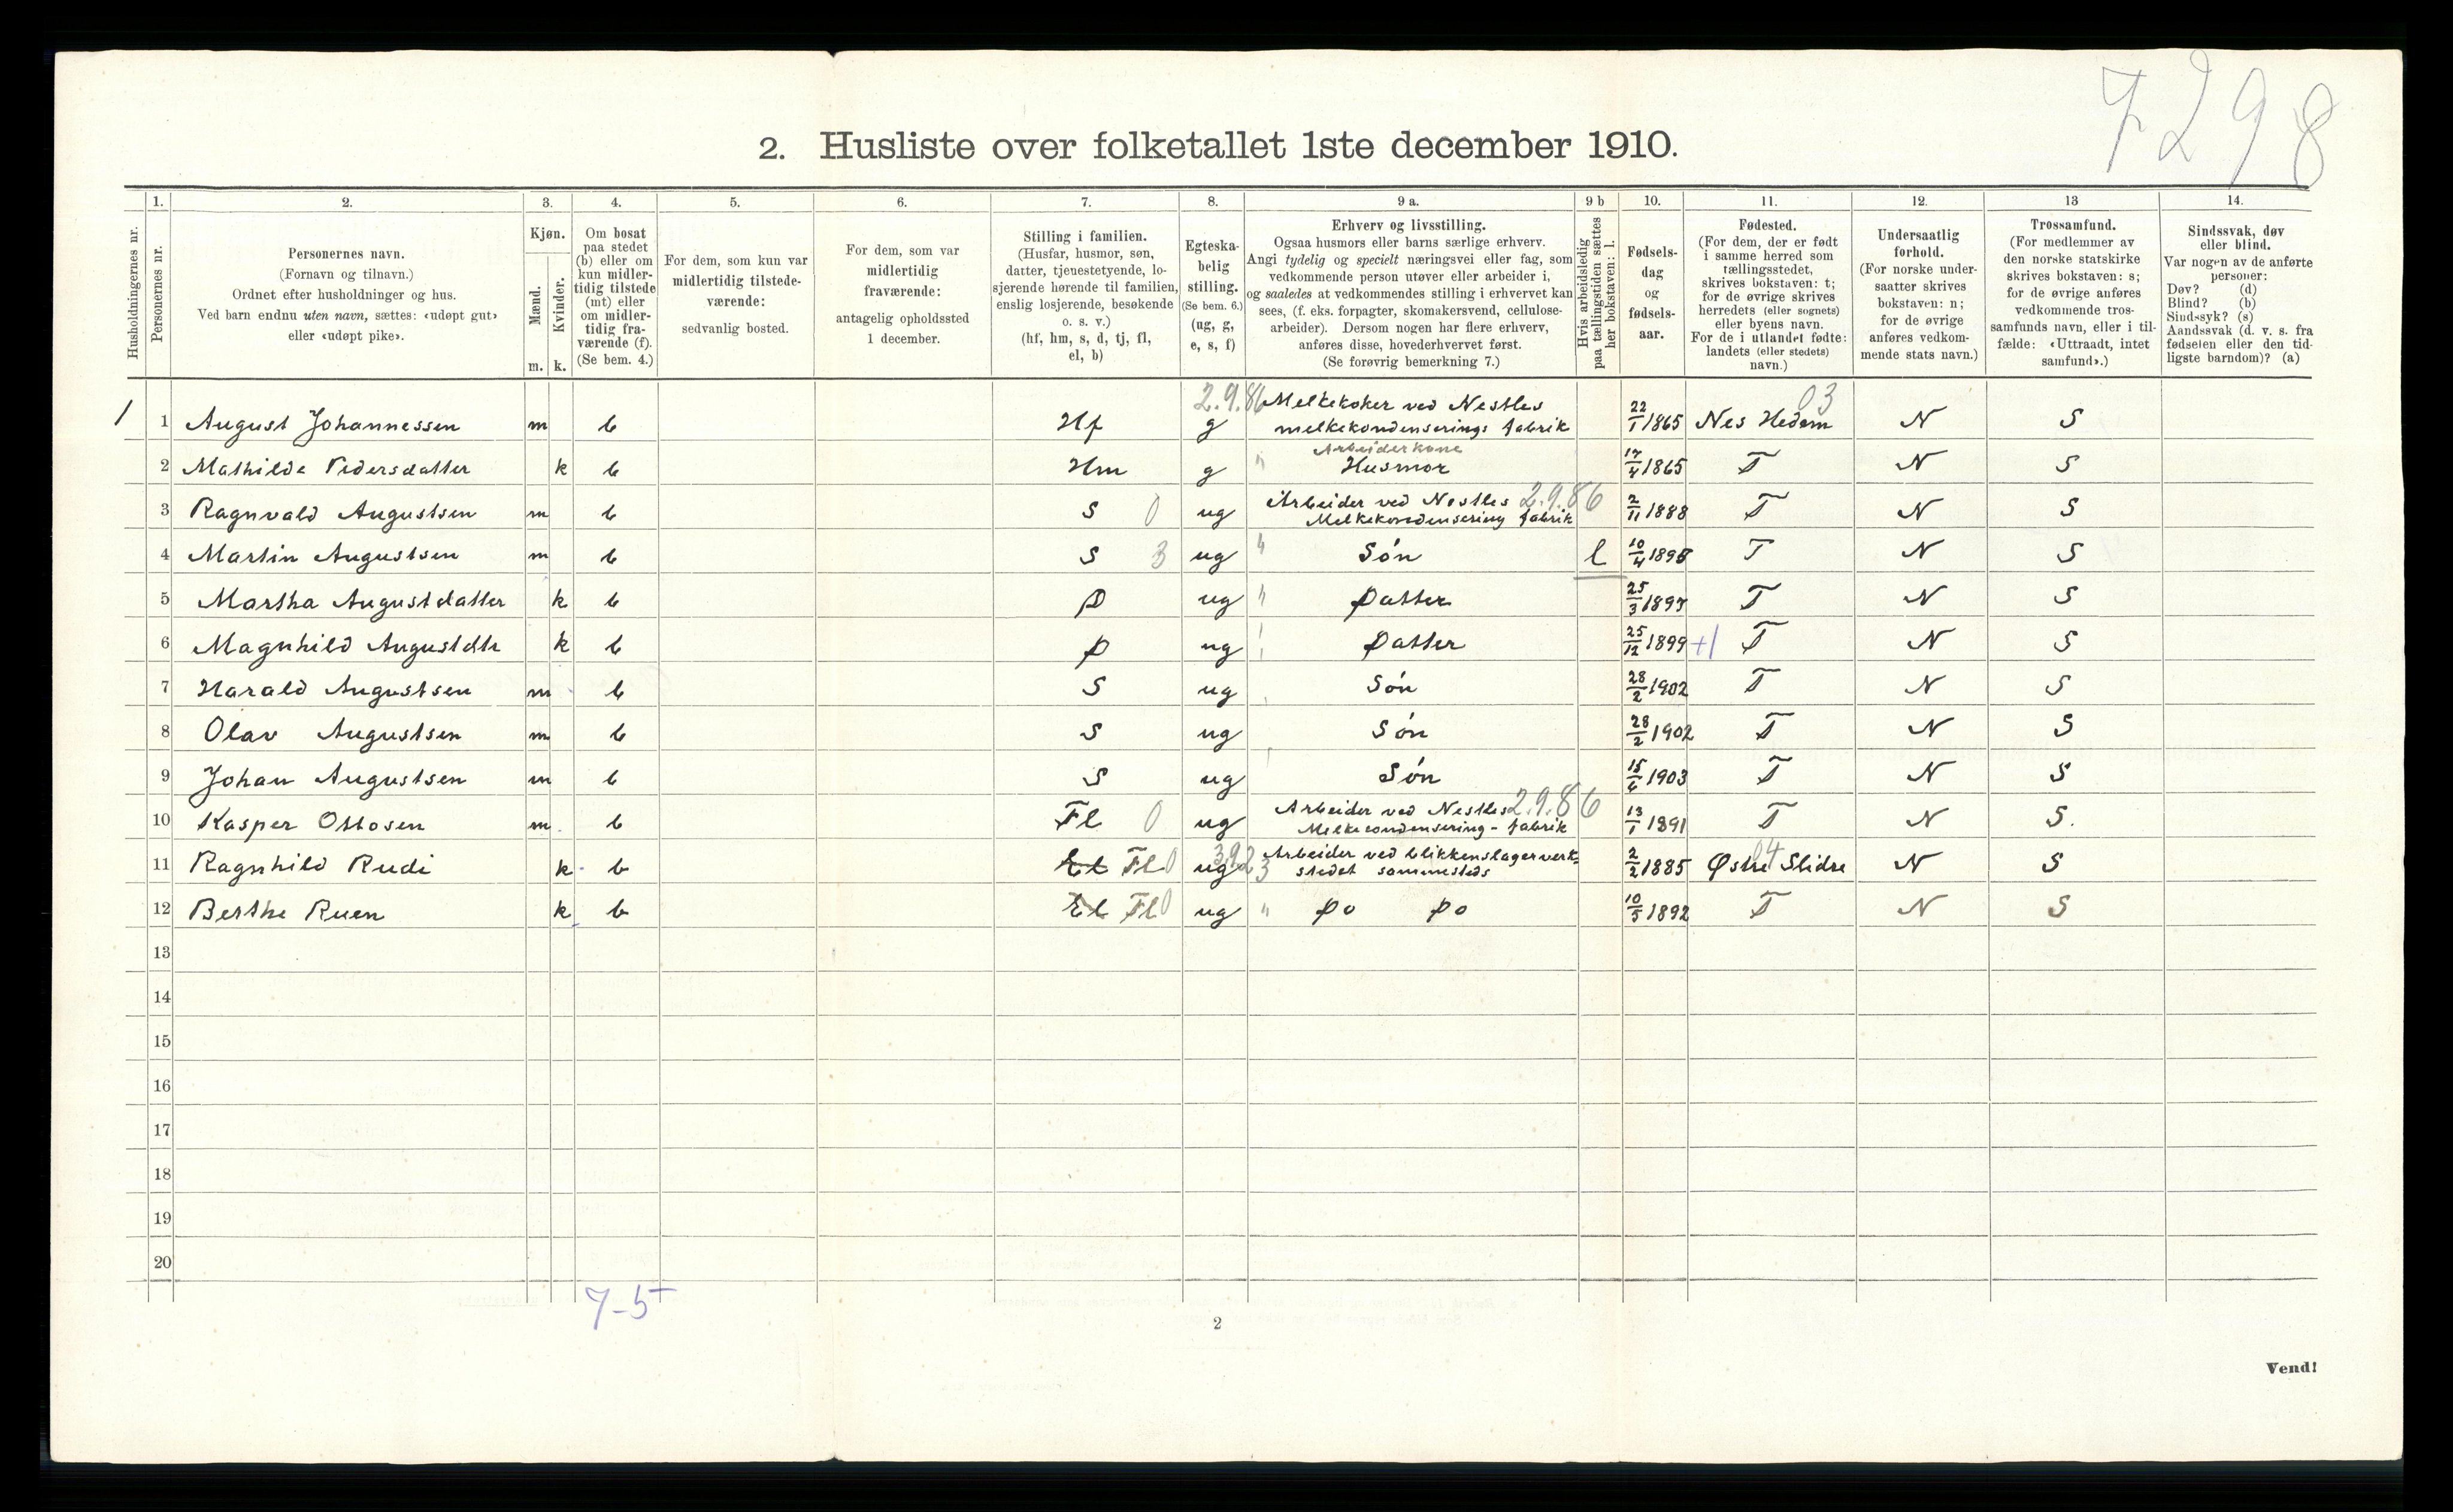 7298
2. Husliste over folketallet 1ste december 1910.
1. 2. 3. 4. 5. 6. 7. 8. 9 a. 9 b 10. 11. 12. 13 14.
Husholdningernes nr.
Personernes nr.
Personernes navn.
(Fornavn og tilnavn.)
Ordnet efter husholdninger og hus.
Ved barn endnu uten navn, sættes: «udøpt gut»
eller «udøpt pike».
Kjøn.
Mænd.
Kvinder.
m. k.
Om bosat
paa stedet
(b) eller om
kun midler-
tidig tilstede
(mt) eller
om midler-
tidig fra-
værende (f).
(Se bem. 4.)
For dem, som kun var
midlertidig tilstede-
værende:
sedvanlig bosted.
For dem, som var
midlertidig
fraværende:
antagelig opholdssted
1 december.
Stilling i familien.
(Husfar, husmor, søn,
datter, tjenestetyende, lo-
sjerende hørende til familien,
enslig losjerende, besøkende
o. s. v.)
(hf, hm, s, d, tj, fl,
el, b)
Egteska-
belig
stilling.
(Se bem. 6.)
(ug, g,
e, s, f)
Erhverv og livsstilling.
Ogsaa husmors eller barns særlige erhverv.
Angi tydelig og specielt næringsvei eller fag, som
vedkommende person utøver eller arbeider i,
og saaledes at vedkommendes stilling i erhvervet kan
sees, (f. eks. forpagter, skomakersvend, cellulose-
arbeider). Dersom nogen har flere erhverv,
anføres disse, hovederhvervet først.
(Se forøvrig bemerkning 7.)
Hvis arbeidsledig
paa tællingstiden sættes
her bokstaven: l.
Fødsels-
dag
og
fødsels-
aar.
Fødested.
(For dem, der er født
i samme herred som
tællingsstedet,
skrives bokstaven: t;
for de øvrige skrives
herredets (eller sognets)
eller byens navn.
For de i utlandet fødte:
landets (eller stedets)
navn.)
Undersaatlig
forhold.
(For norske under-
saatter skrives
bokstaven: n;
for de øvrige
anføres vedkom-
mende stats navn.)
Trossamfund.
(For medlemmer av
den norske statskirke
skrives bokstaven: s;
for de øvrige anføres
vedkommende tros-
samfunds navn, eller i til-
fælde: «Uttraadt, intet
samfund».)
Sindssvak, døv
eller blind.
Var nogen av de anførte
personer:
Døv? (d)
Blind? (b)
Sindssyk? (s)
Aandssvak (d. v. s. fra
fødselen eller den tid-
ligste barndom)? (a)
2.9.86 Melkekoker ved Nestles 03
1 1 August Johannessen m b Hf g melkekondenserings fabrik 22/1 1865 Nes Hedem N S
Arbeiderkone
2 Mathilde Pedersdatter k b Hm g " Husmor 17/4 1865 T N S
Arbeider ved Nestles 2.9.86
3 Ragnvald Augustsen m b S 0 ug Melkekondensering fabrik 2/11 1888 T N S
4 Martin Augustsen m b S 3 ug " Søn l 10/4 1895 T N S
5 Martha Augustdatter k b D ug " Datter 25/3 1897 T N S
6 Magnhild Augustdtr k b D ug " Datter 25/12 1899 +1 T N S
7 Harald Augustsen m b S ug Søn 28/2 1902 T N S
8 Olav Augustsen m b S ug Søn 28/2 1902 T N S
9 Johan Augustsen m b S ug Søn 15/6 1903 T N S
Arbeider ved Nestles 2.9.86
10 Kasper Ottosen m. b Fl 0 ug Melkecondensering - fabrik 13/1 1891 T N S.
3923 Arbeider ved blikkenslagerverk-
11 Ragnhild Rudi k b El Fl 0 ug stedet sammesteds 2/2 1885 Østre Slidre 04 N S
12 Berthe Ruen k b El Fl 0 ug " Do Do 10/5 1892 T N S
13
14
15
16
17
18
19
20
7-5
2
Vend!